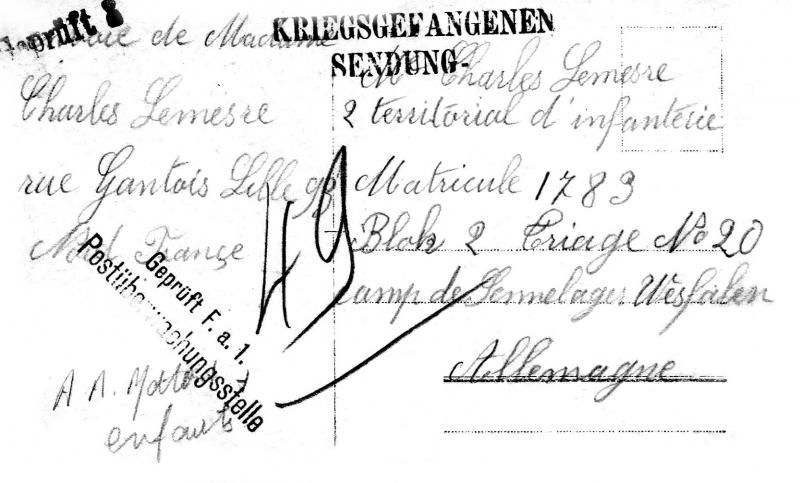 Geprüft 8
KRIEGSGEFANGENEN
SENDUNG-
de Madame
Charles Lemesre
rue Gantois Lille
Nord France
Mr Charles Lemesre
2 territorial d'infanterie
Matricule 1783
Blok 2 Triage No 20
Camp de Sennelager Wesfalen
Allemagne
49
Geprüft F. a. 1.
Postüberwachungsstelle
enfants